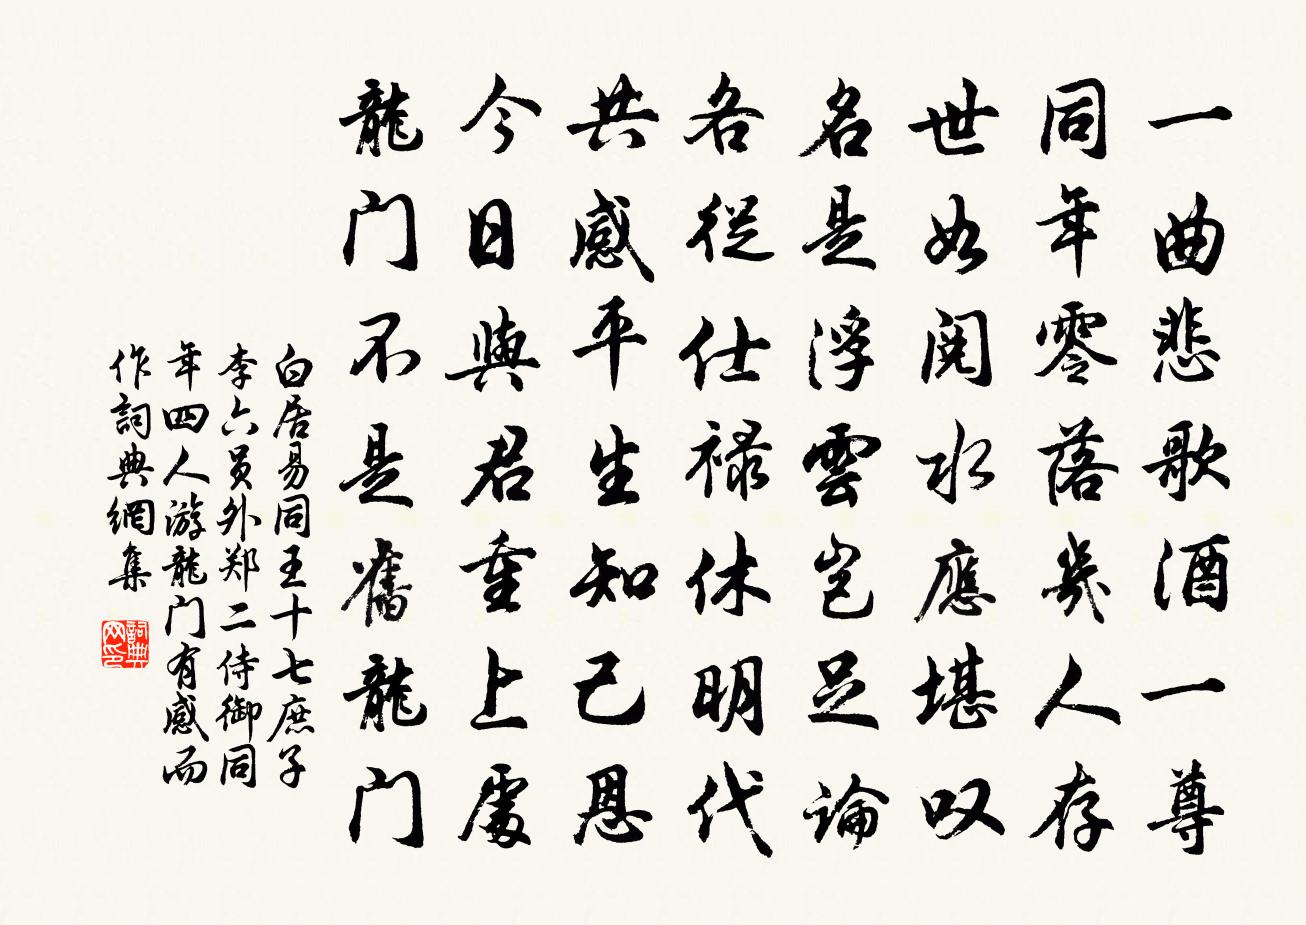 一曲悲歌酒一尊
同年零落幾人存
世如閱水應堪叹
名是浮雲豈足論
各從仕禄休明代
共感平生知己恩
今日與君重上處
龍门不是舊龍门
白居易同王十七庶子
李六员外郑二侍御同
年四人游龍门有感而
作詞典網集
詞典网印